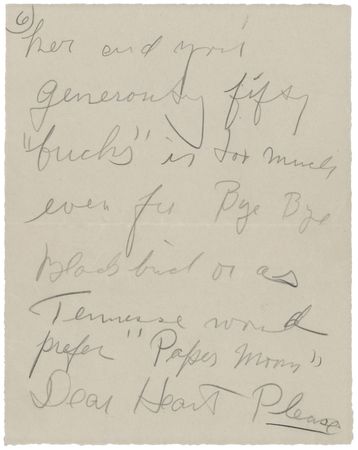 6
her and your
Generosity fifty
"bucks" is too much
even for Bye Bye
Black bird or as
Tennesse would
prefer "Paper Moon"
Dear Heart Please